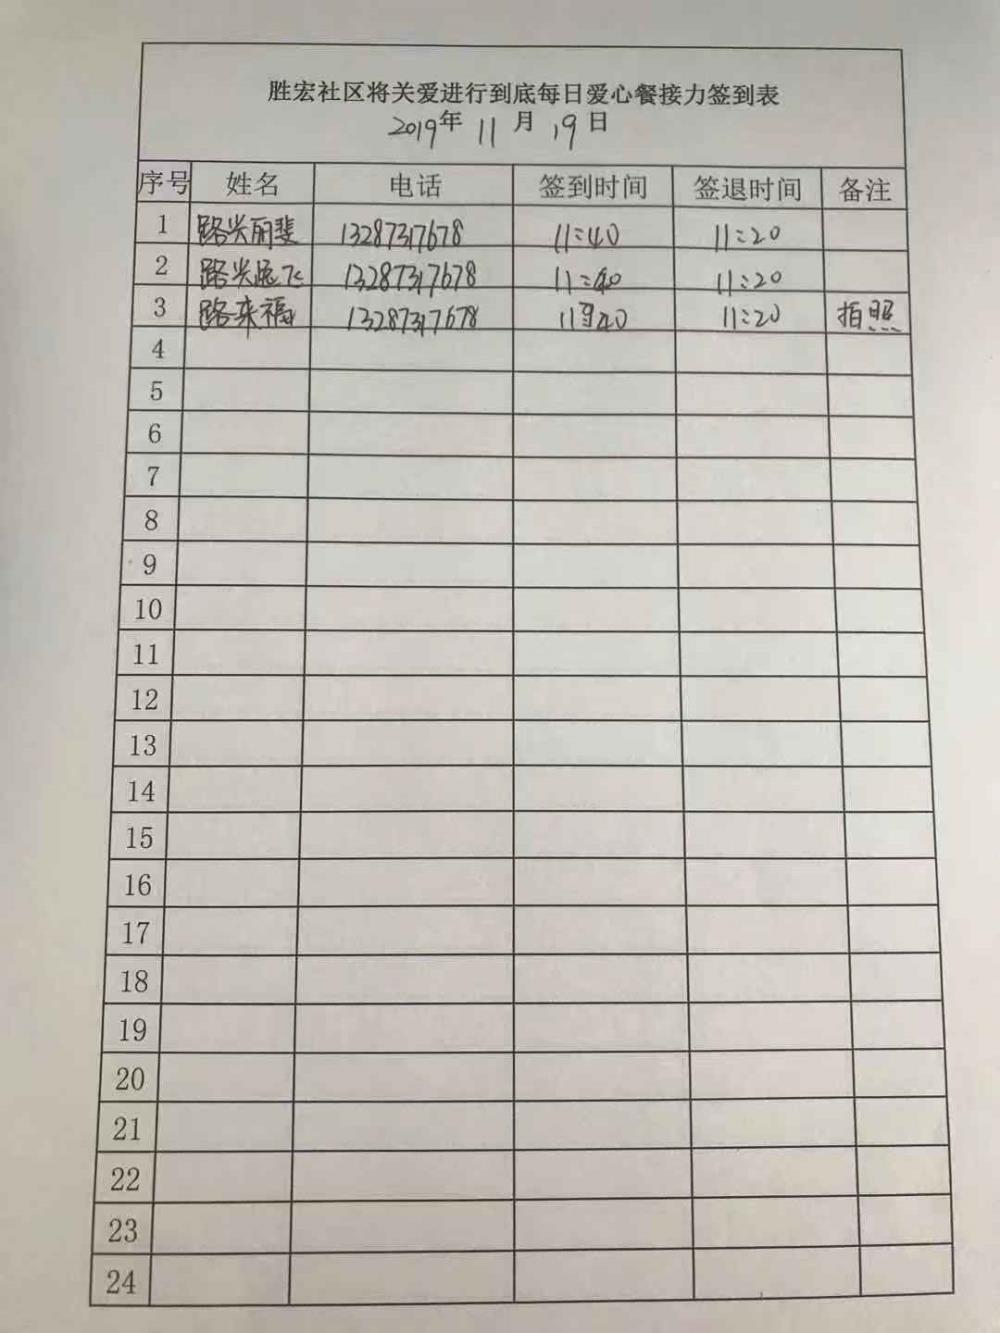 胜宏社区将关爱进行到底每日爱心餐接力签到表
2019年 11 月 19 日
序号 姓名 电话 签到时间 签退时间 备注
1 路兴丽斐 13287317678 11:40 11:20
2 路兴远飞 13287317678 11:40 11:20
3 路来福 13287317678 11:40 11:20 拍照
4
5
6
7
8
9
10
11
12
13
14
15
16
17
18
19
20
21
22
23
24